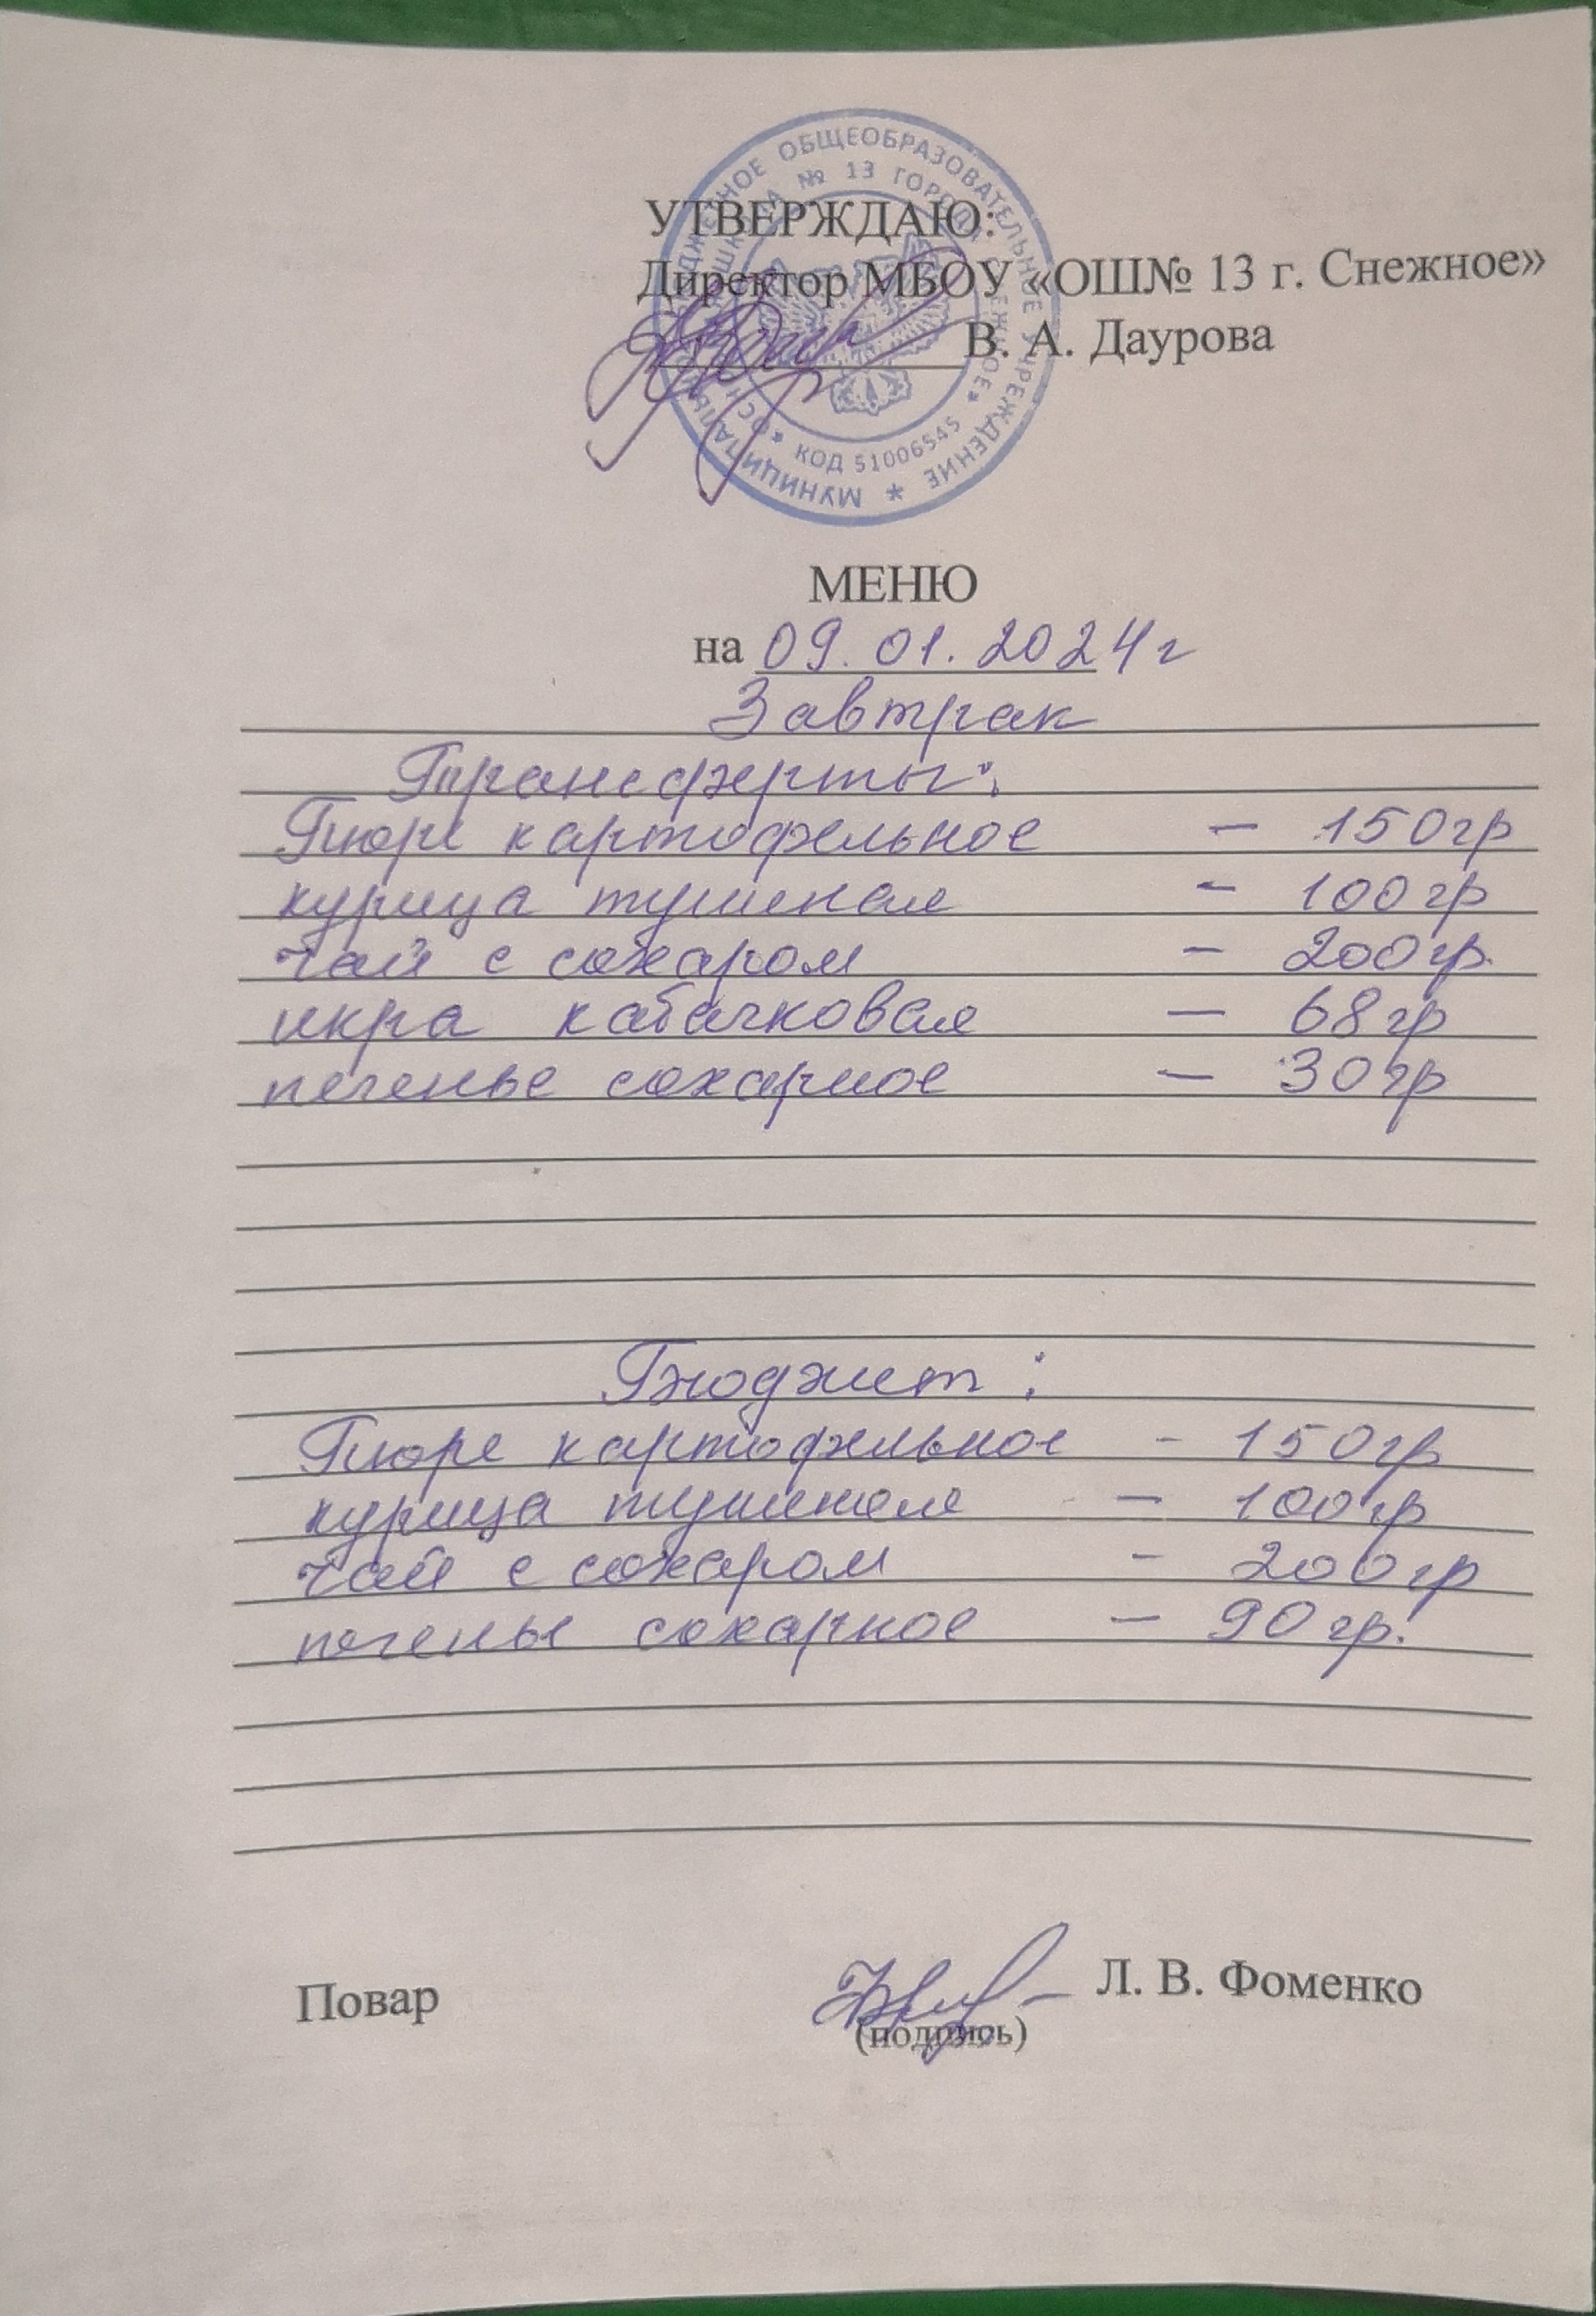 УТВЕРЖДАЮ:
Директор МБОУ «ОШ№ 13 г. Снежное»
В. А. Даурова
МУНИЦИПАЛЬНОЕ БЮДЖЕТНОЕ ОБЩЕОБРАЗОВАТЕЛЬНОЕ УЧРЕЖДЕНИЕ *
ШКОЛА № 13 ГОРОДА СНЕЖНОЕ» * КОД 51006545 *
МЕНЮ
на 09.01.2024г
Завтрак
Трансферты:
Пюре картофельное – 150гр
курица тушеная – 100гр
чай с сахаром – 200гр.
икра кабачковая – 68гр
печенье сахарное – 30гр
Бюджет:
Пюре картофельное - 150гр
курица тушеная – 100гр
чай с сахаром - 200гр
печенье сахарное – 90гр.
Повар
Л. В. Фоменко
(подпись)